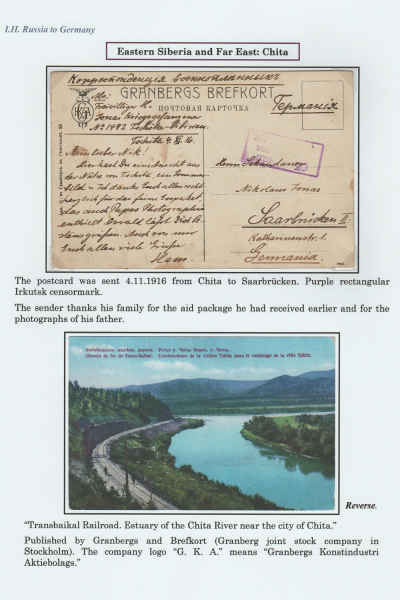 I.II. Russia to Germany
Eastern Siberia and Far East: Chita
Корреспонденція военноплѣнныхъ
GRANBERGS BREFKORT
ПОЧТОВАЯ КАРТОЧКА
Германія
Abs:
Freiwillige H.
Jonas Kriegsgefangener
№ 1492 Tschita Sibirien.
Tschita 4. XI. 16.
Mein lieber Nik!
Hier hast Du eine Ansicht aus
der Nähe von Tschita ein Sommer-
bild – Ich danke Euch allen recht
herzlich für das feine Packet,
das auch Papas Photographie
enthielt. Oswald läßt Dich be-
stens grüßen. Auch von mir
Euch allen viele Grüße
Hans.
dem
Nikolaus Jonas
Saarbrücken II.
Katharinenstr. 1.
Germania.
The postcard was sent 4.11.1916 from Chita to Saarbrücken. Purple rectangular
Irkutsk censormark.
The sender thanks his family for the aid package he had received earlier and for the
photographs of his father.
Забайкальск. желѣзн. дорога. Устье р. Читы близъ г. Читы.
Chemin de fer de Trans-Baikal. L'embouchure de la rivière Tchita dans le voisinage de la ville Tchita.
Reverse.
“Transbaikal Railroad. Estuary of the Chita River near the city of Chita.”
Published by Granbergs and Brefkort (Granberg joint stock company in
Stockholm). The company logo “G. K. A.” means “Granbergs Konstindustri
Aktiebolags.”